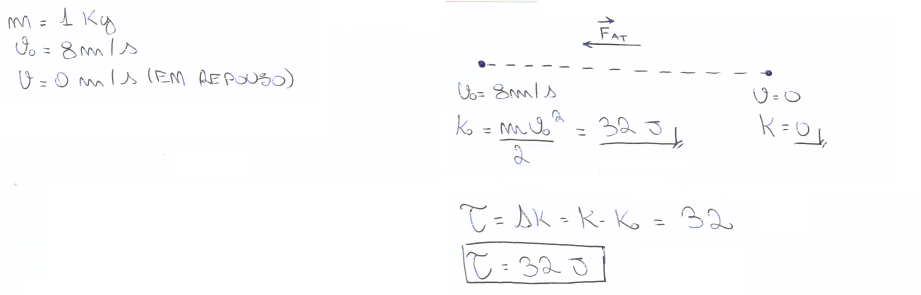 m = 1 Kg
v₀ = 8 m/s
v = 0 m/s (EM REPOUSO)
F⃗ₐₜ
v₀ = 8 m/s
v = 0
K₀ = mv₀²/2 = 32 J
K = 0
τ = ΔK = K - K₀ = 32
τ = 32 J